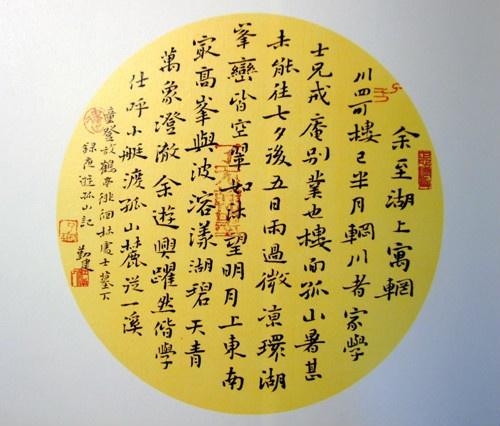 余至湖上寓輞
川四可樓已半月輞川者家學
士兄戒庵別業也樓面孤山暑甚
未能往七夕後五日雨過微凉環湖
峯巒皆空翠如沐望明月上東南
最高峯與波溶漾湖碧天青
萬象澄澈余遊興躍然偕學
仕呼小艇渡孤山麓從一溪
童登放鶴亭徘徊林處士墓下
錄夜遊孤山記